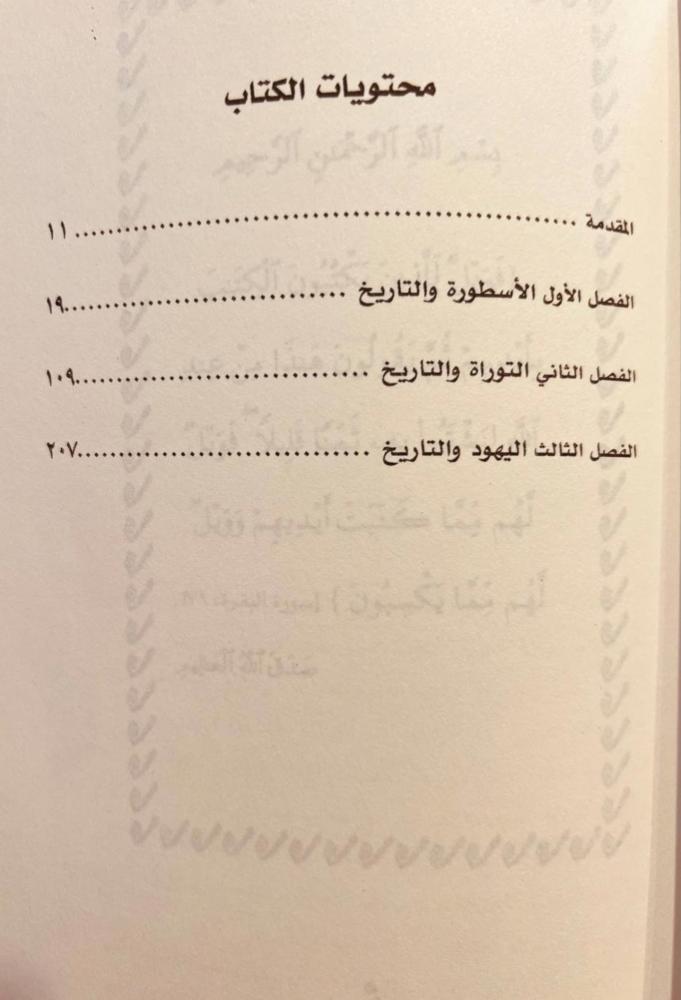 محتويات الكتاب
المقدمة ........................................................ ١١
الفصل الأول الأسطورة والتاريخ ................................ ١٩
الفصل الثاني التوراة والتاريخ ................................ ١٠٩
الفصل الثالث اليهود والتاريخ ................................ ٢٠٧